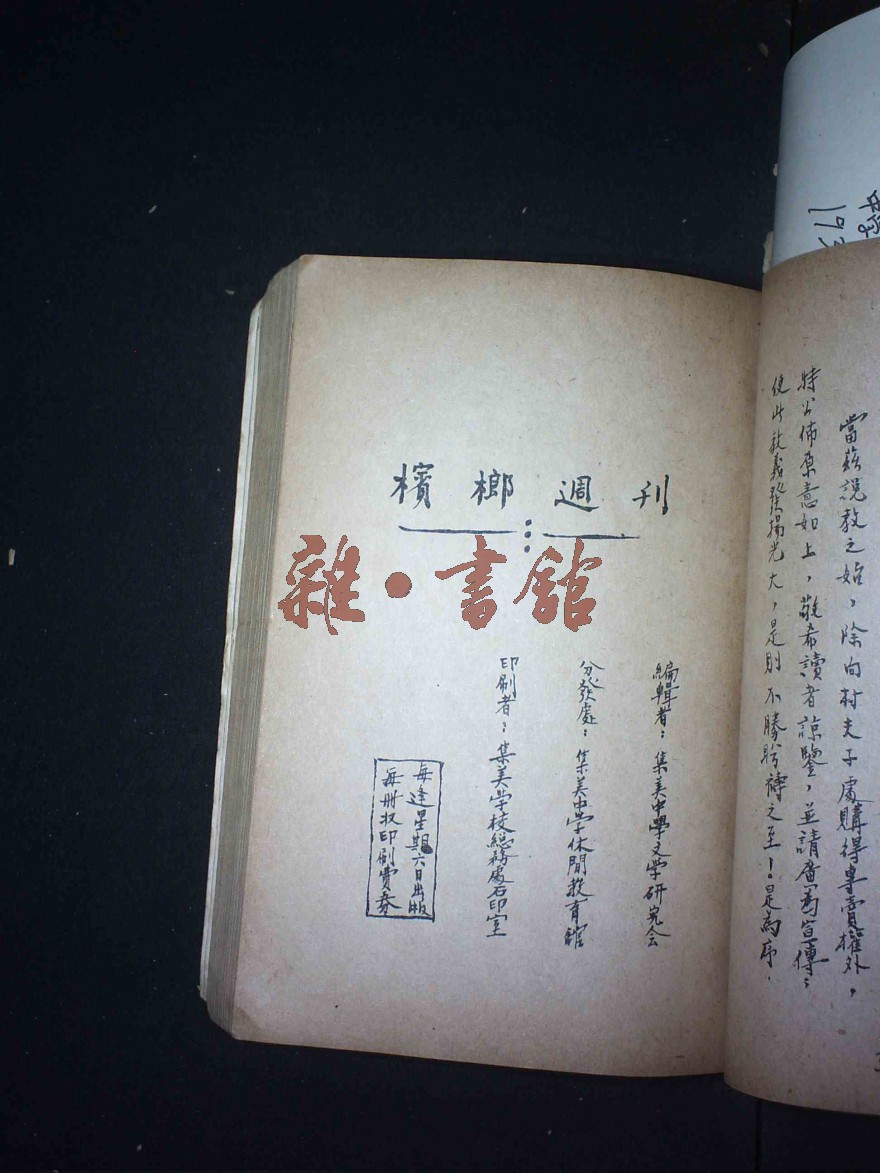 193
當茲說教之始，除向村夫子處購得專賣權外，
特公佈原意如上，敬希讀者諒鑒，並請廣為宣傳；
使此教義發揚光大，是則不勝盼禱之至！是為序．
檳榔週刊
雜·書館
編輯者：集美中學文学研究会
分發處：集美中学休閒教育館
印刷者：集美学校總務處石印室
每逢星期六日出版
每册收印刷費券